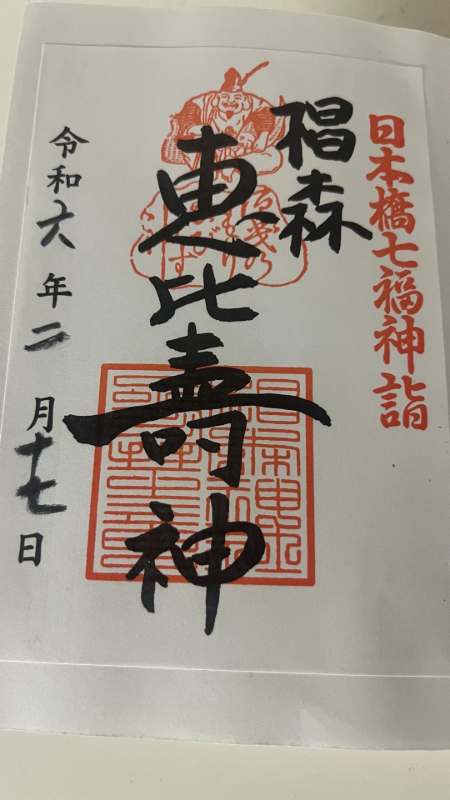 日本橋七福神詣
椙森
恵比壽神
令和六年二月十七日